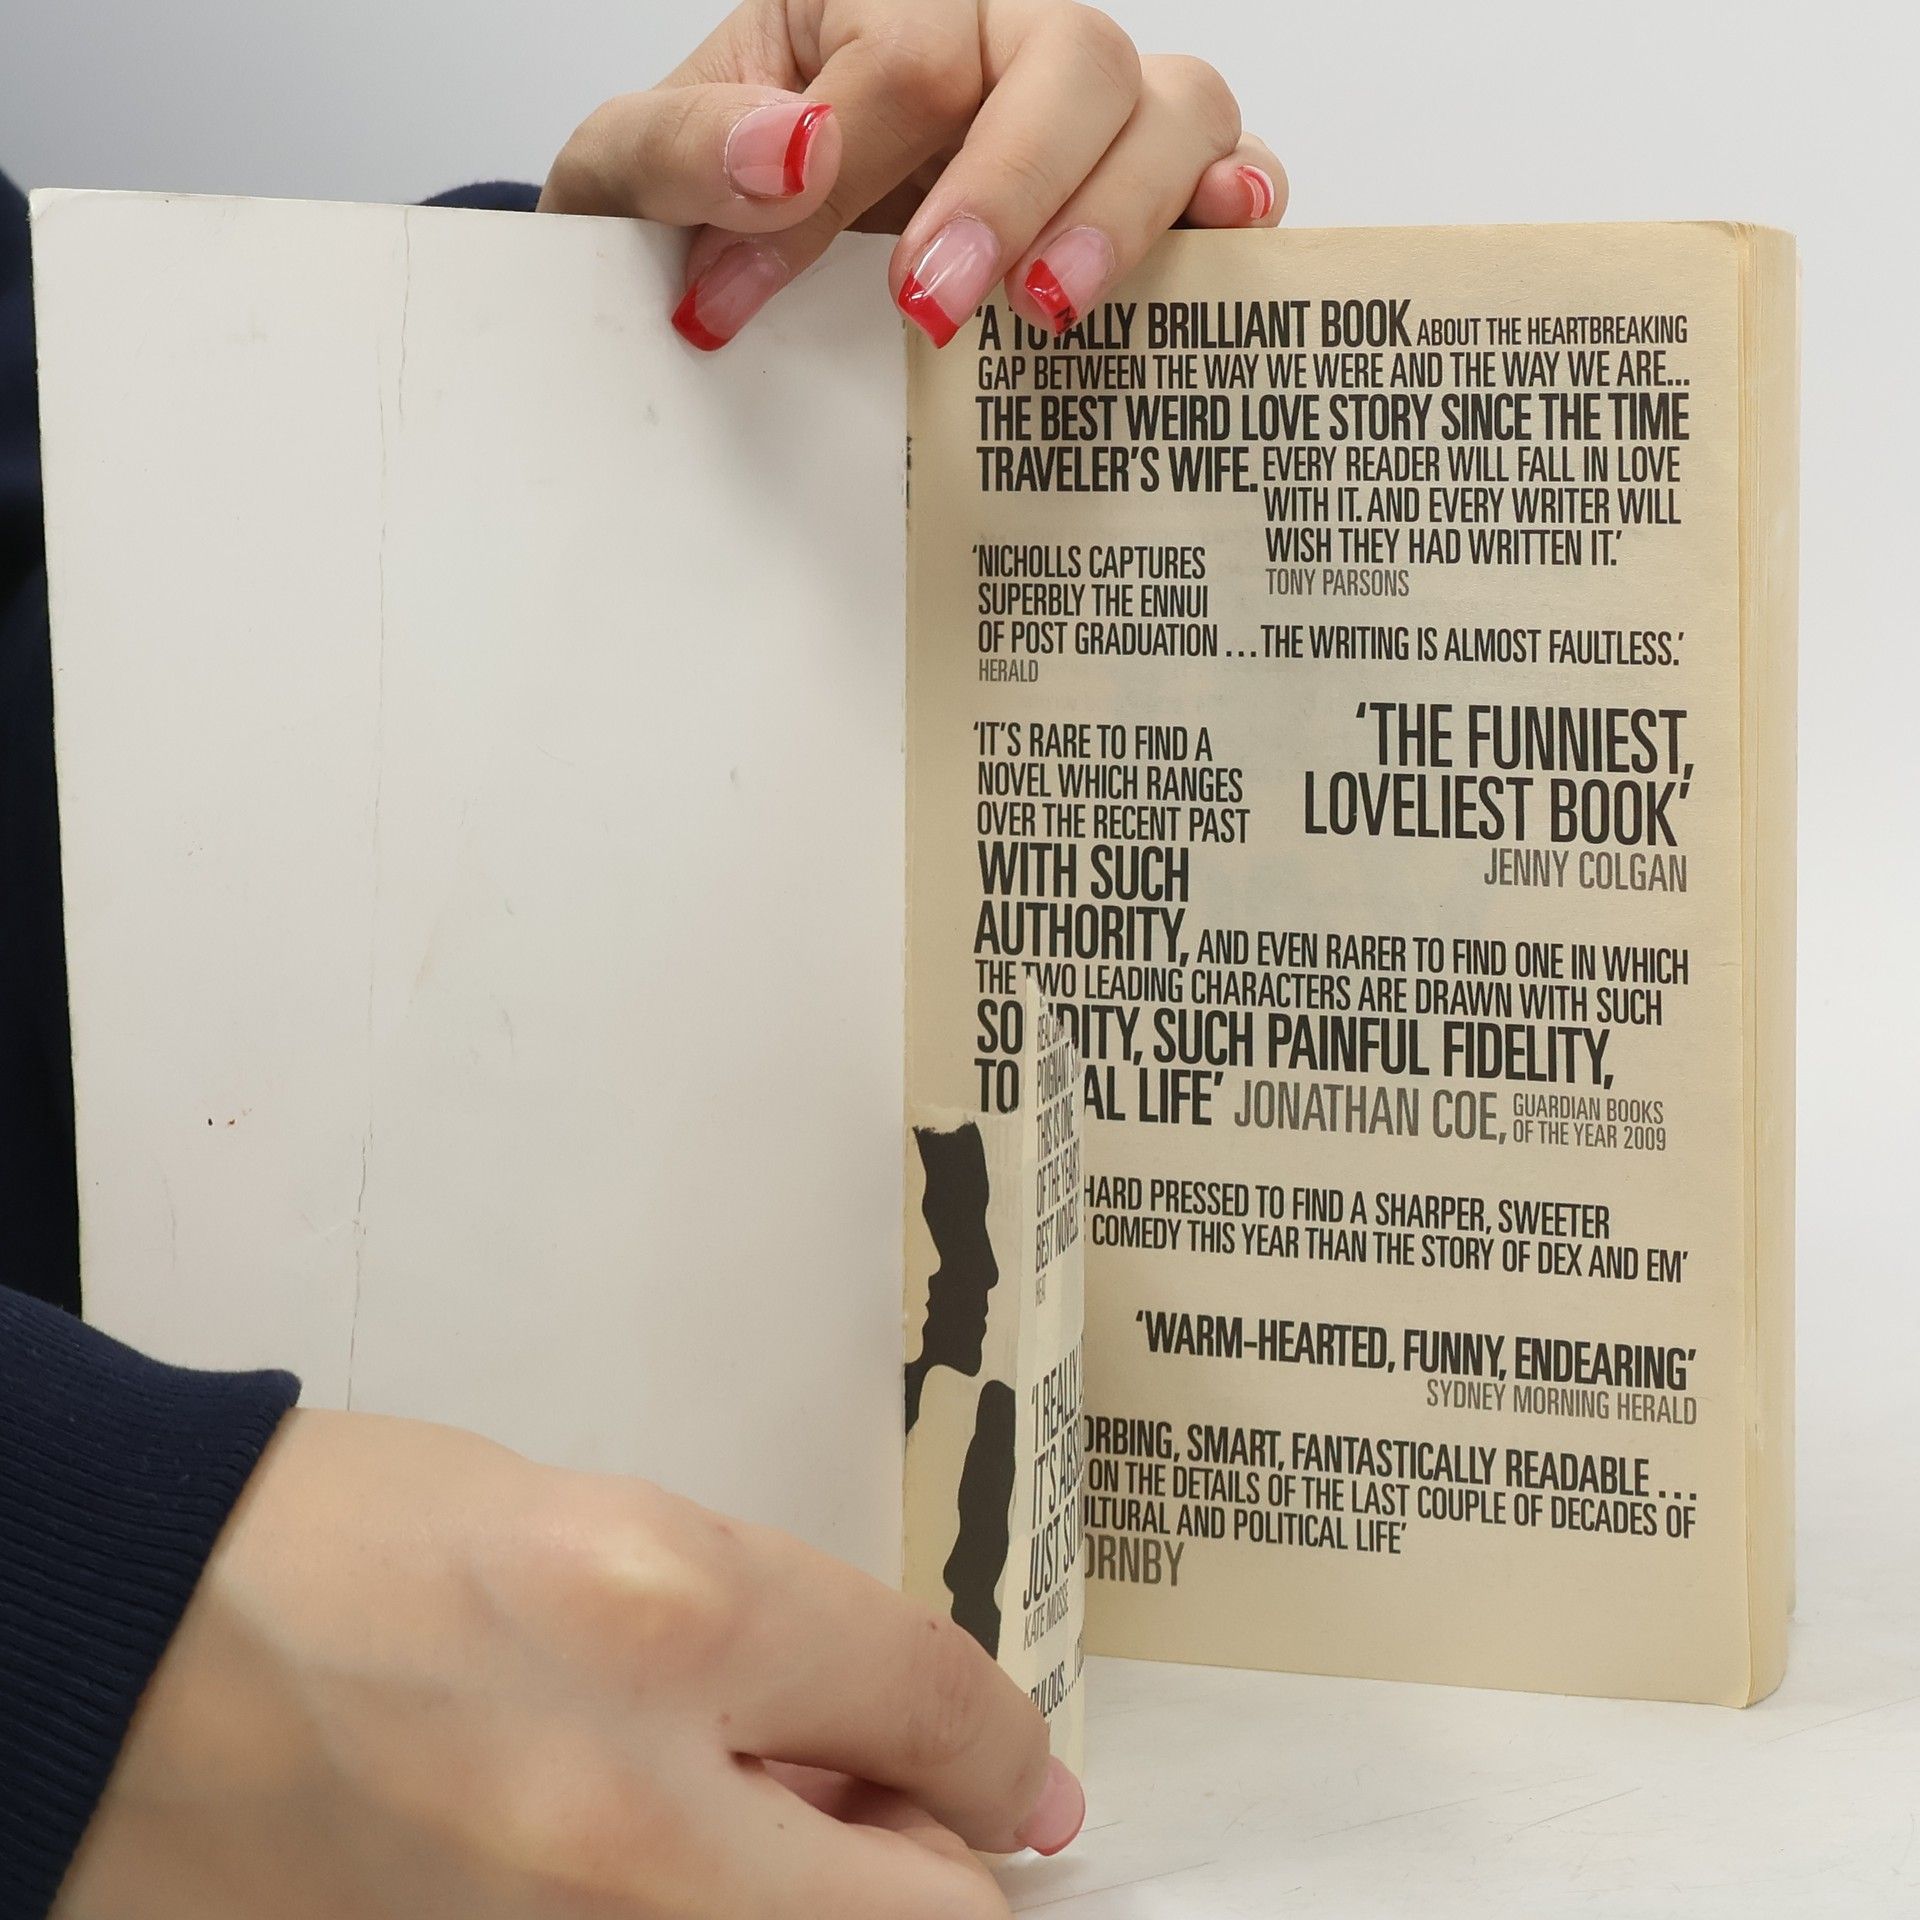 'A TOTALLY BRILLIANT BOOK ABOUT THE HEARTBREAKING
GAP BETWEEN THE WAY WE WERE AND THE WAY WE ARE...
THE BEST WEIRD LOVE STORY SINCE THE TIME
TRAVELER'S WIFE. EVERY READER WILL FALL IN LOVE
WITH IT. AND EVERY WRITER WILL
WISH THEY HAD WRITTEN IT.'
TONY PARSONS
'NICHOLLS CAPTURES
SUPERBLY THE ENNUI
OF POST GRADUATION ... THE WRITING IS ALMOST FAULTLESS.'
HERALD
'THE FUNNIEST,
LOVELIEST BOOK'
JENNY COLGAN
'IT'S RARE TO FIND A
NOVEL WHICH RANGES
OVER THE RECENT PAST
WITH SUCH
AUTHORITY, AND EVEN RARER TO FIND ONE IN WHICH
THE TWO LEADING CHARACTERS ARE DRAWN WITH SUCH
SOLIDITY, SUCH PAINFUL FIDELITY,
TO AL LIFE' JONATHAN COE, GUARDIAN BOOKS
OF THE YEAR 2009
HARD PRESSED TO FIND A SHARPER, SWEETER
COMEDY THIS YEAR THAN THE STORY OF DEX AND EM'
'WARM-HEARTED, FUNNY, ENDEARING'
SYDNEY MORNING HERALD
ORBING, SMART, FANTASTICALLY READABLE ...
ON THE DETAILS OF THE LAST COUPLE OF DECADES OF
ULTURAL AND POLITICAL LIFE'
ORNBY
POIGNANT
THIS IS ONE
OF THE YEAR'S
BEST NOVELS
HEAT
'I REALLY
IT'S ABSO
JUST SO
KATE MOSSE